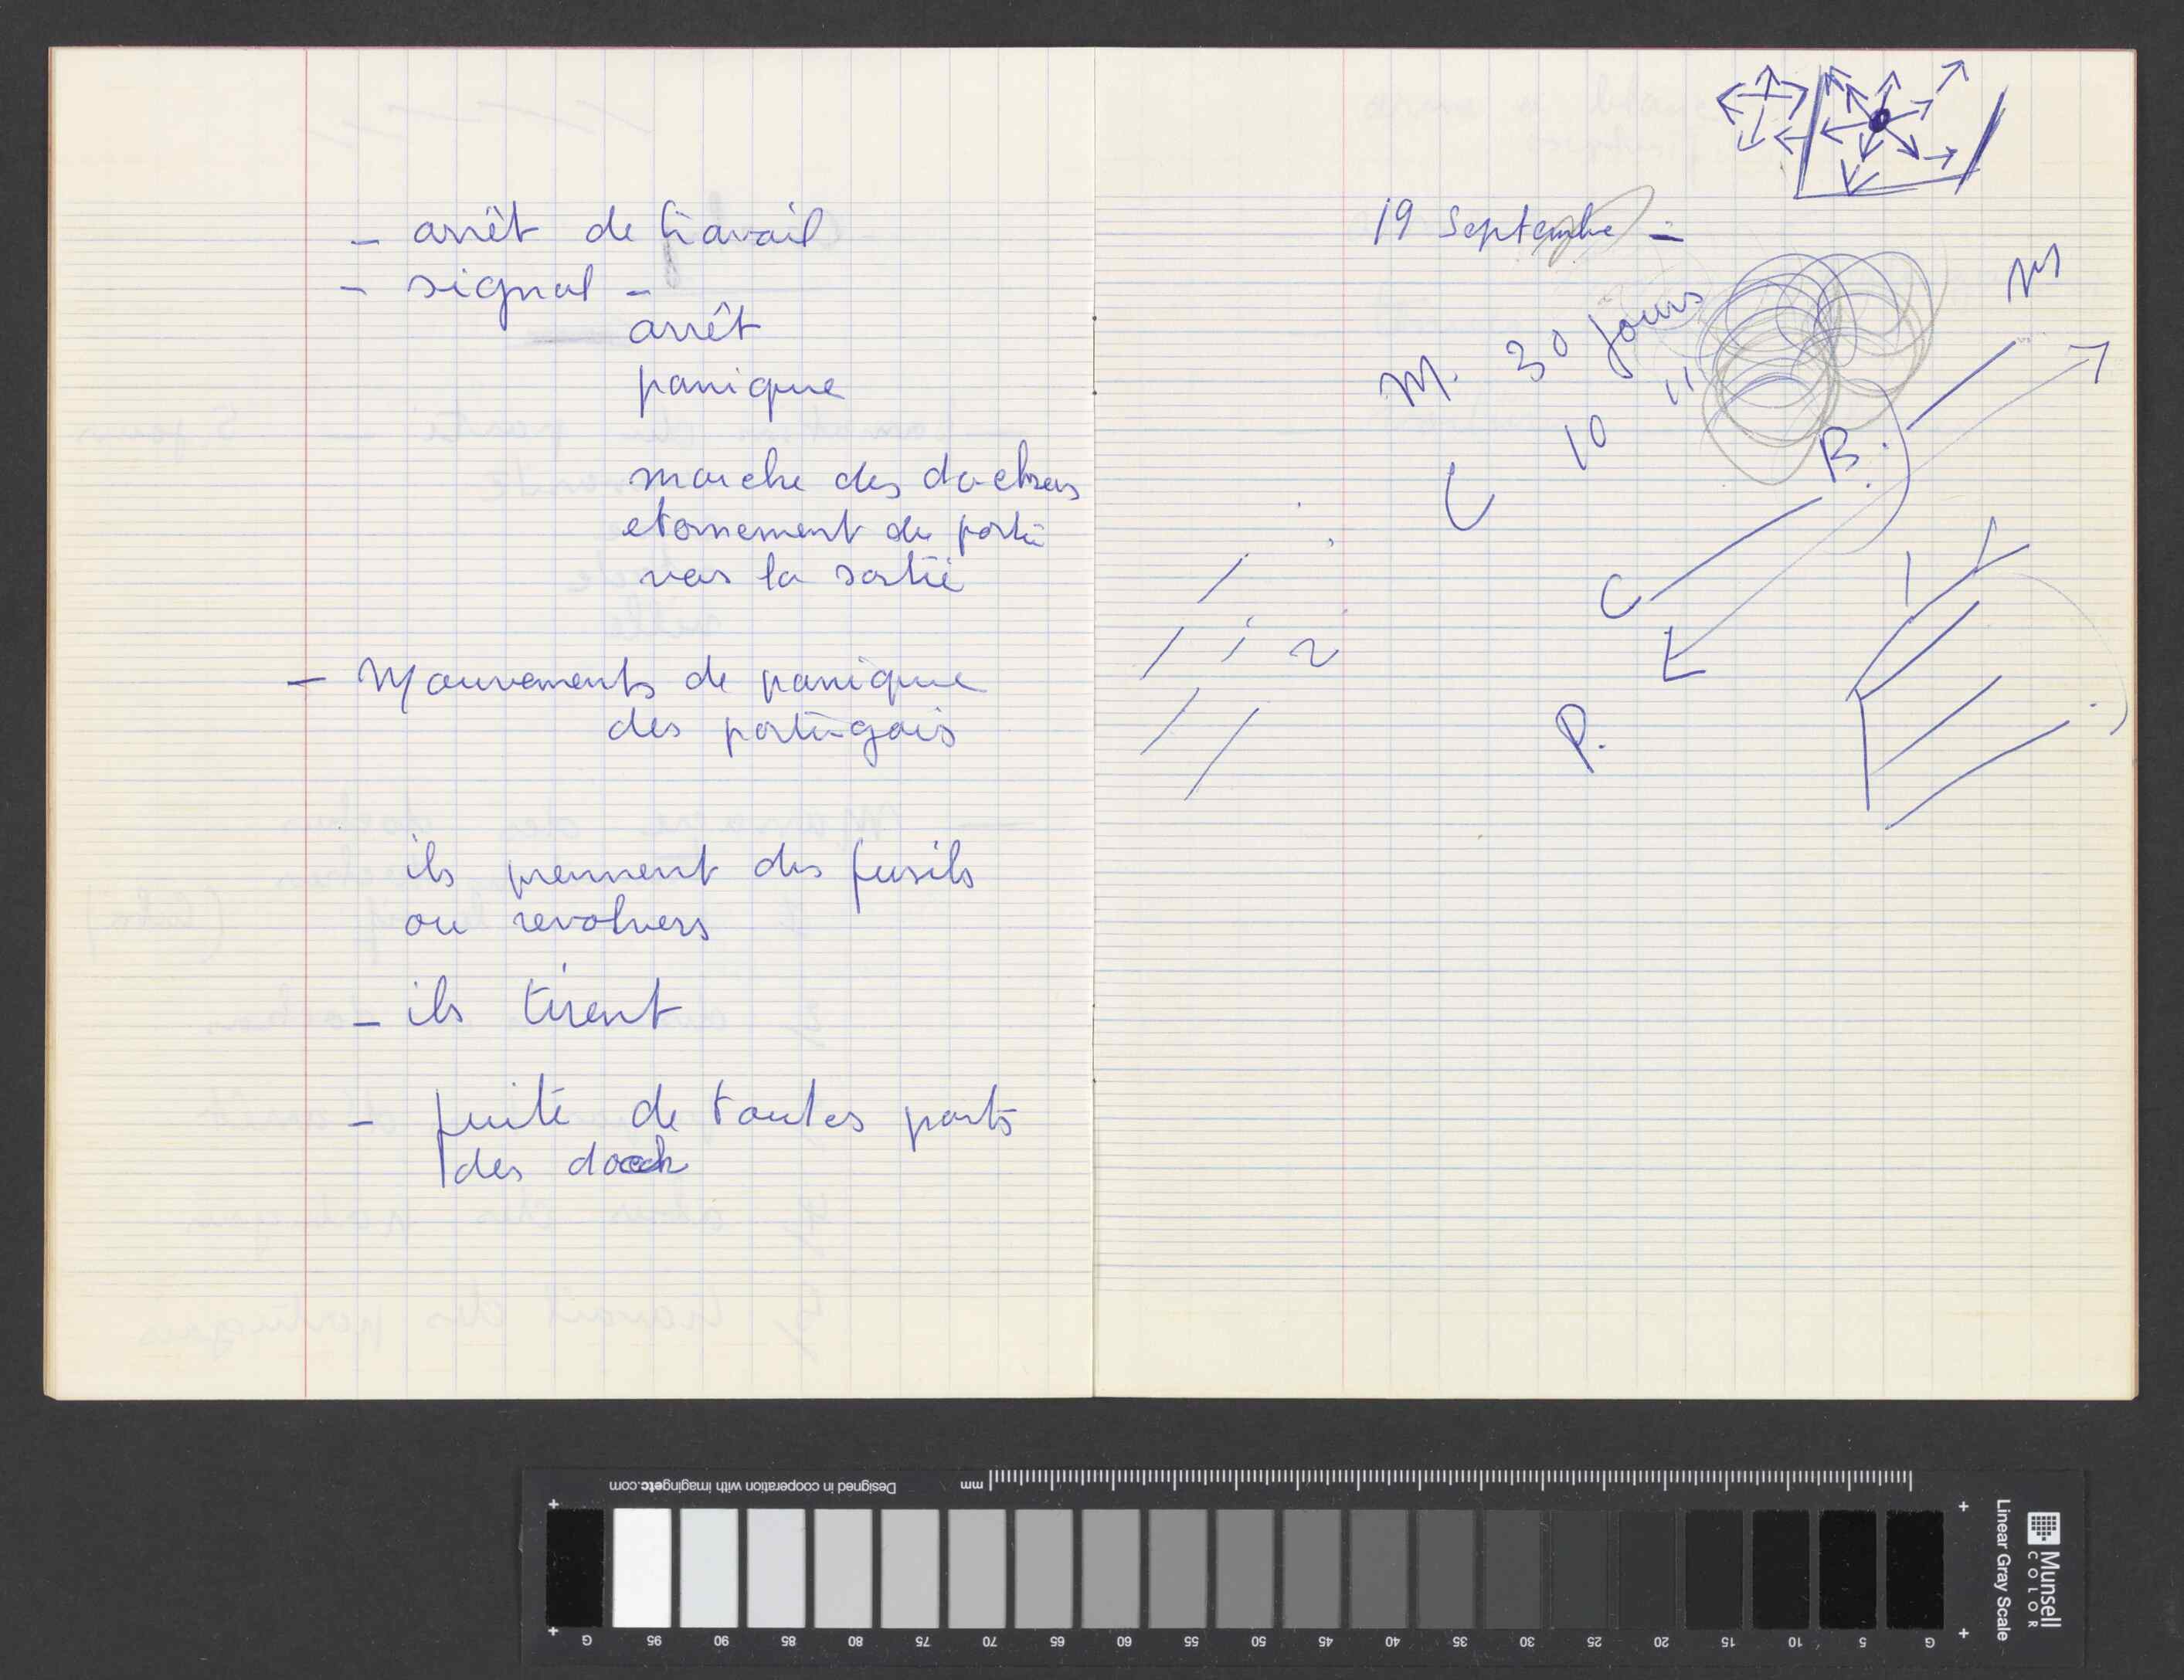 - arrêt de travail
- signal -
arrêt
panique
marche des dockers
etonnement des portu
vers la sortie
- Mouvements de panique
des portugais
ils prennent des fusils
ou revolvers
- ils tirent
- fuite de toutes parts
des dock
19 Septembre -
M. 30 jours
10 "
C
M
B.
C
P.
Designed in cooperation with imagingetc.com
mm
G 95 90 85 80 75 70 65 60 55 50 45 40 35 30 25 20 15 10 5 G
Linear Gray Scale
Munsell
COLOR